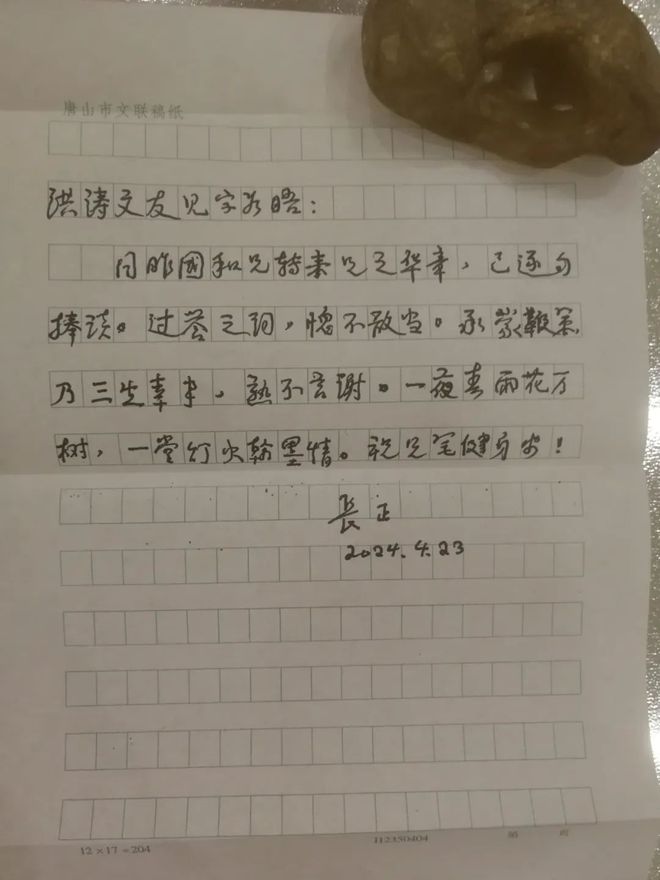 唐山市文联稿纸
洪涛文友见字如晤：
日昨國和兄转来兄之华章，已逐句
捧读。过誉之词，愧不敢当。承蒙鞭策
乃三生幸事，熟不言谢。一夜春雨花万
树，一堂灯火翰墨情。祝兄笔健身安！
長正
2024.4.23
12×17=204
第 页